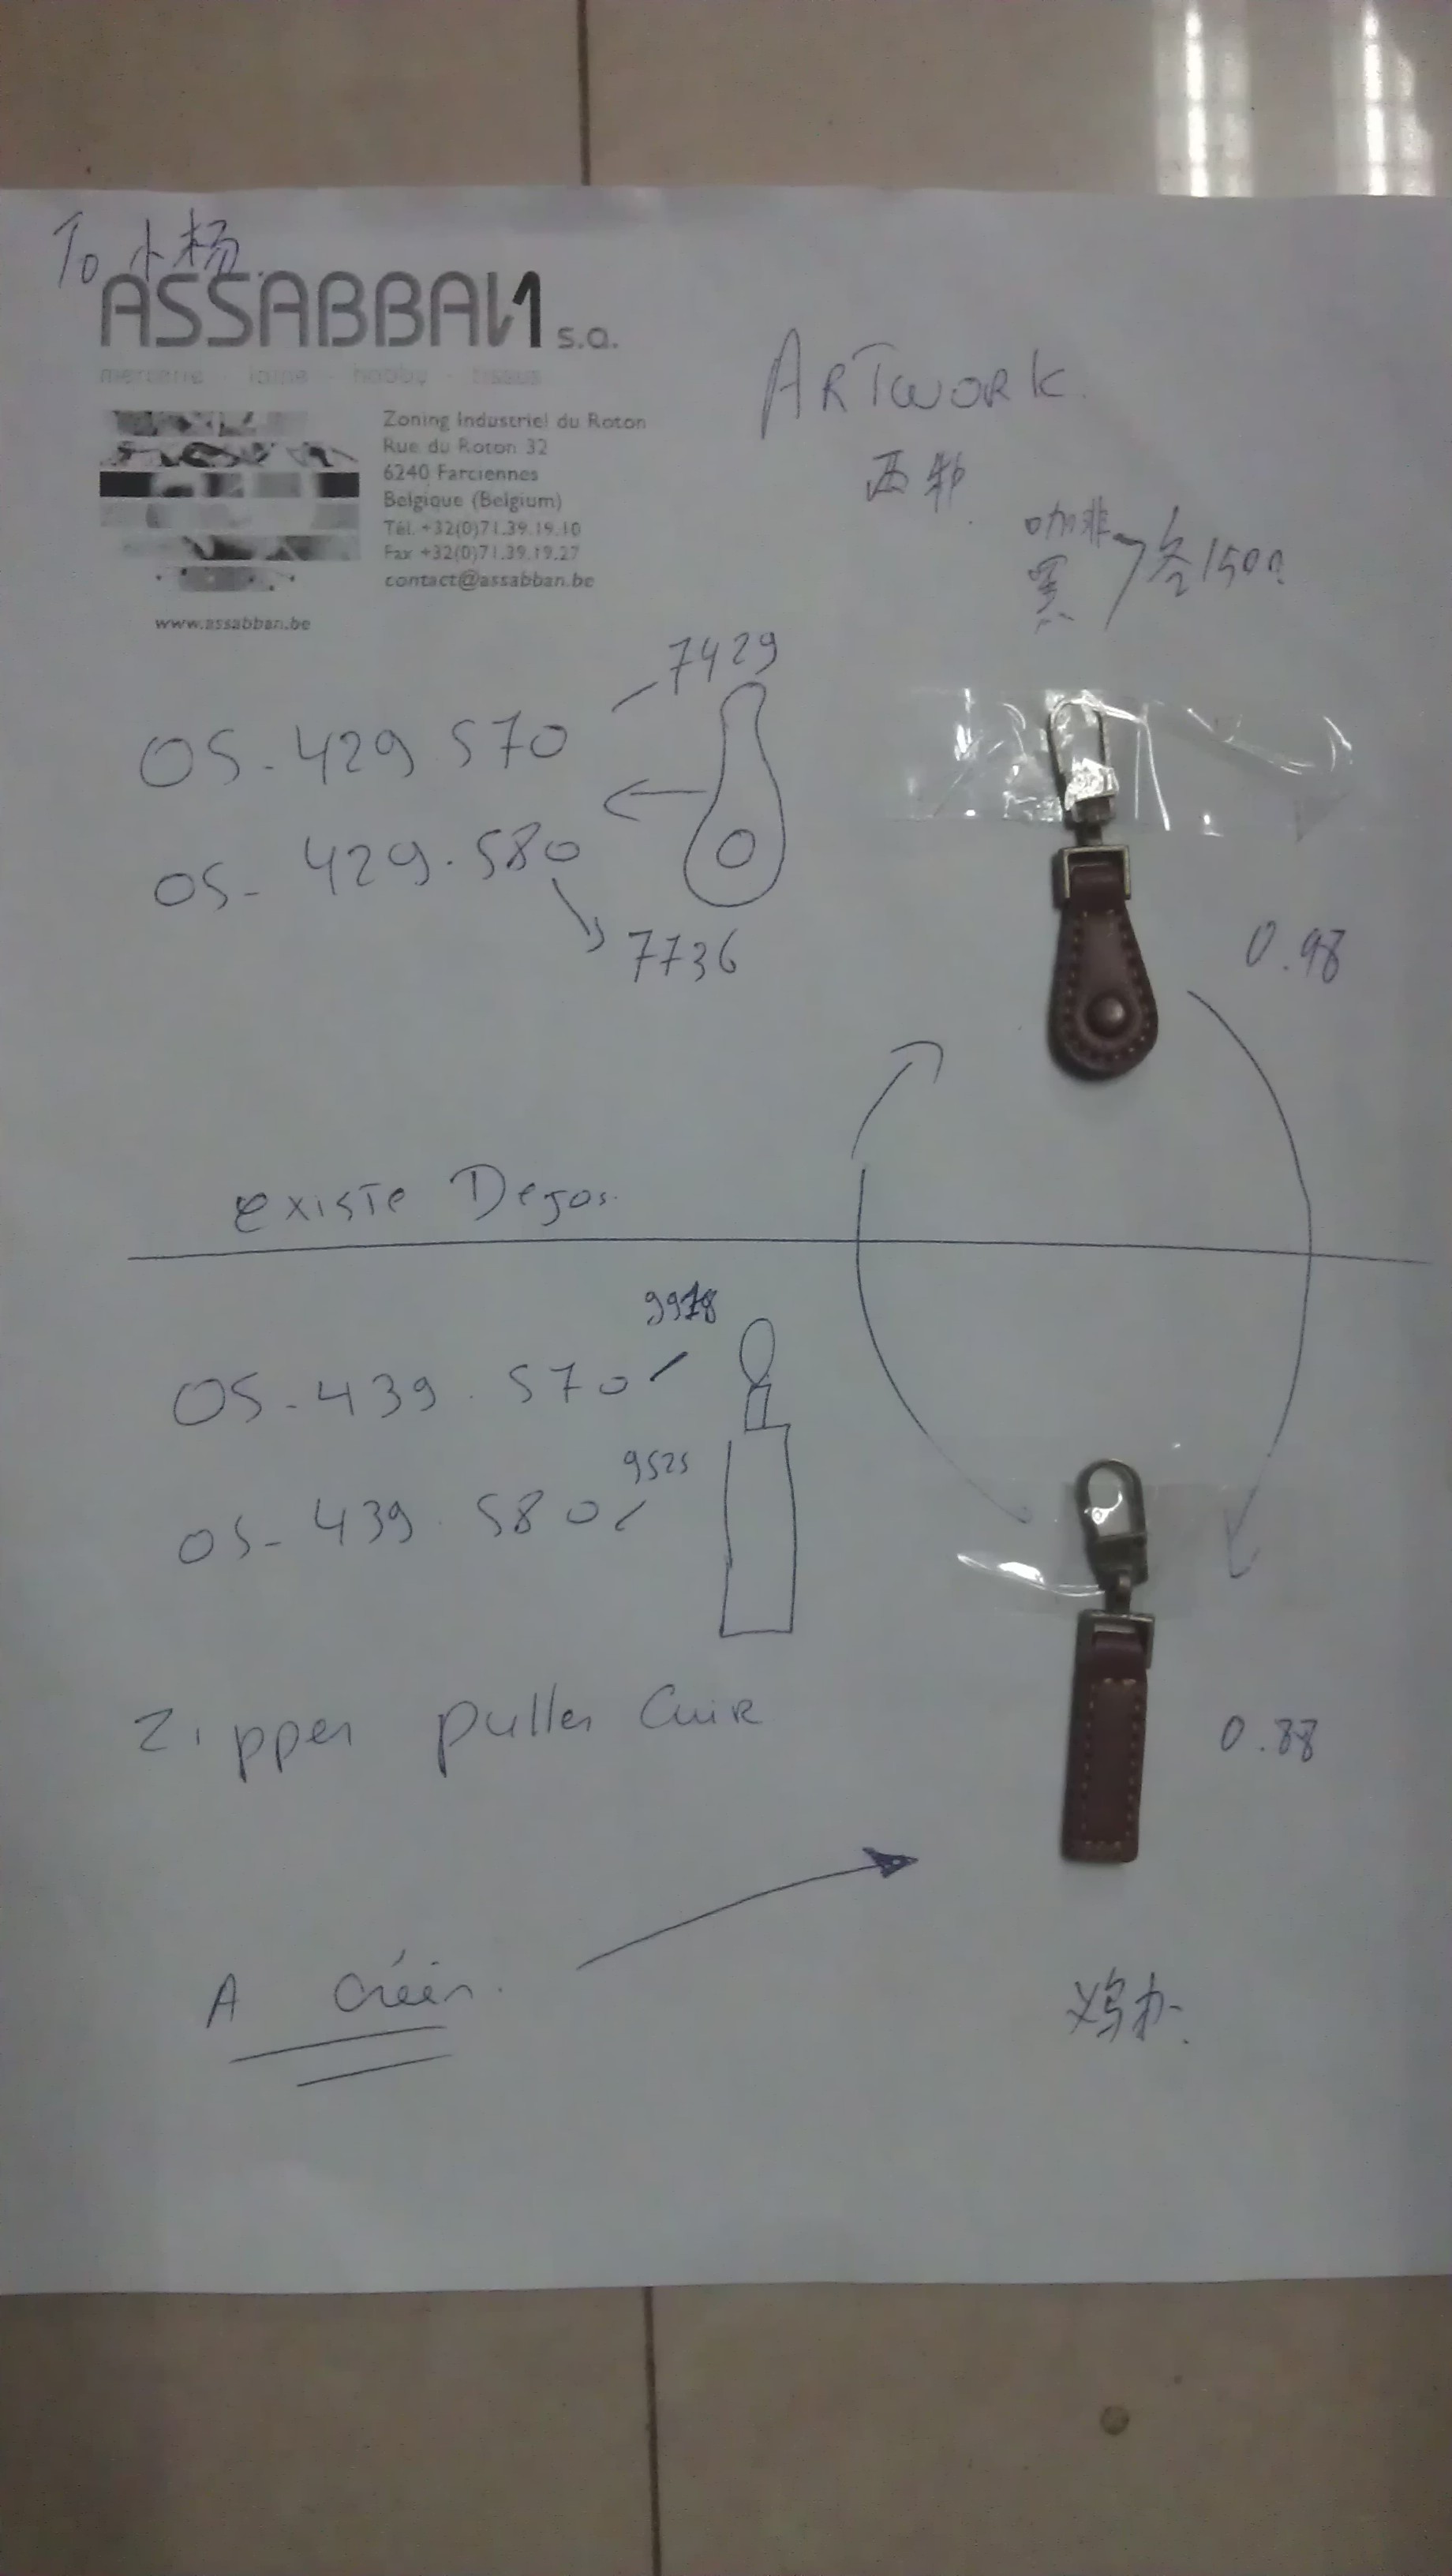 To 小杨
ASSABBAN1 s.a.
mercerie - laine - hobby - tissus
Zoning Industriel du Roton
Rue du Roton 32
6240 Farciennes
Belgique (Belgium)
Tél. +32(0)71.39.19.10
Fax +32(0)71.39.19.27
contact@assabban.be
www.assabban.be
ARTWORK
咖啡
黑
各1500
7429
OS-429 570
OS-429.580
7736
0.98
existe Dejos.
9978
OS-439.570
9525
OS-439.580
Zipper puller Cuir
0.88
A Créer.